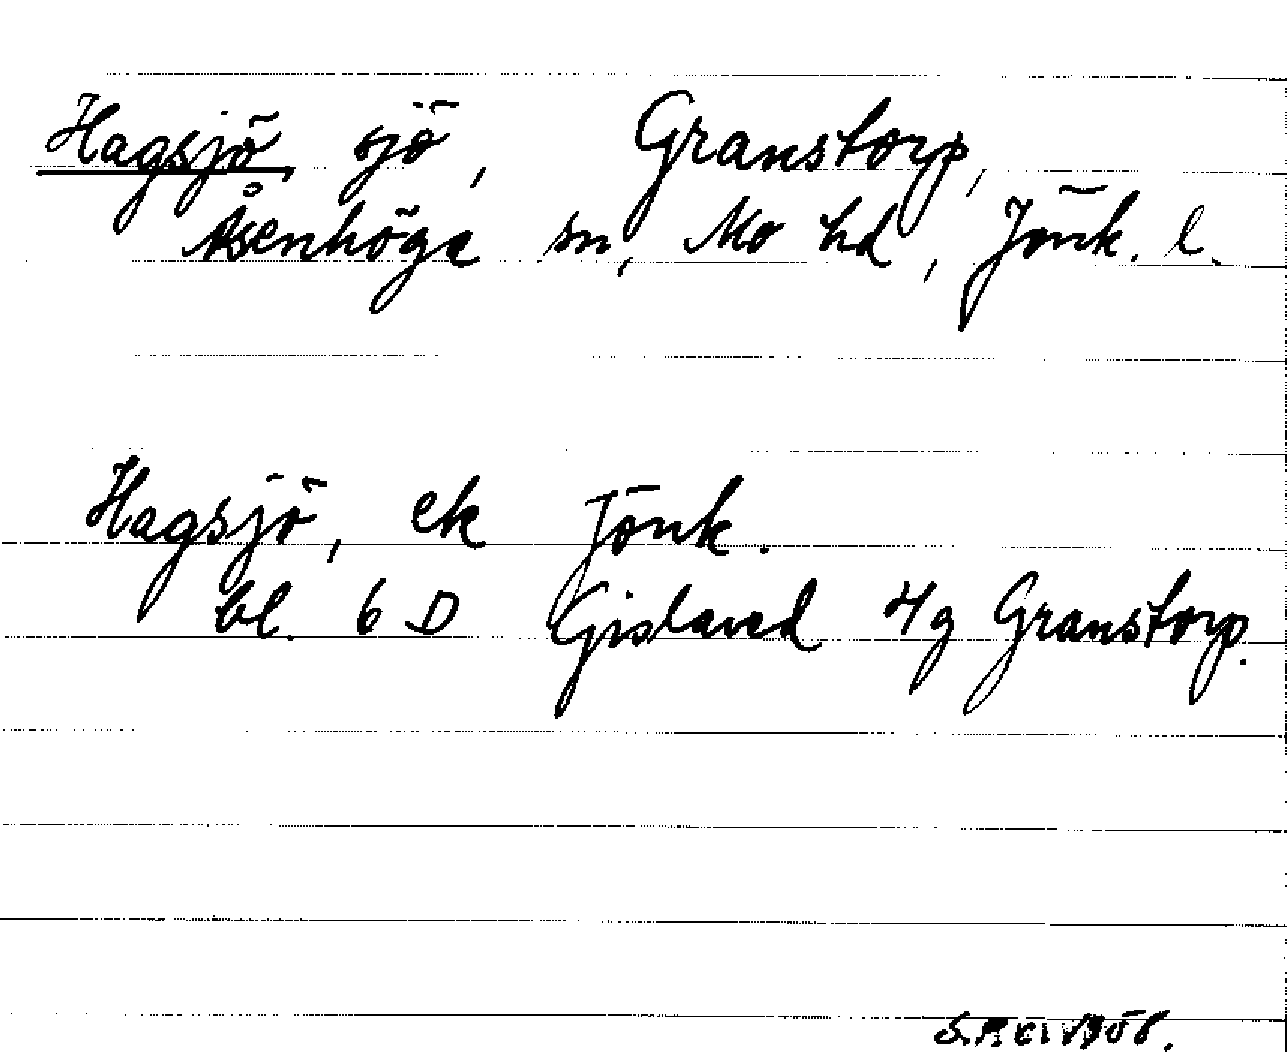 Hagsjö sjö, Granstorp,
Åsenhöga sn, Mo hd, Jönk. l.
Hagsjö, ek Jönk.
bl. 6 D Gislaved 4g Granstorp.